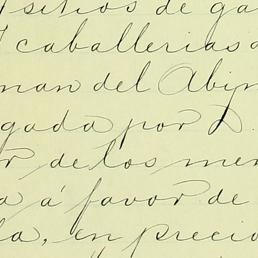 sitios de ga
caballerias
man del Abin
gada por D.
r de los men
a á favor de
la, en precio